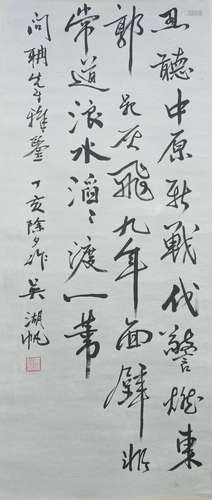 丑聽中原新戰伐驚燃東
郭劫灰飛九年面壁非
常道浪水滔〻渡一葦
問聃先生雅鑒 丁亥除夕作 吳湖帆